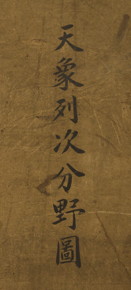 天象列次分野圖